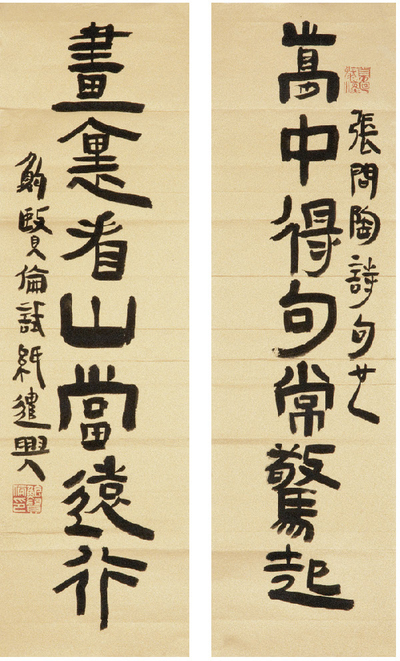 夢中得句常驚起
張問陶詩句也
畫裏看山當遠行
鮑賢倫試紙遣興